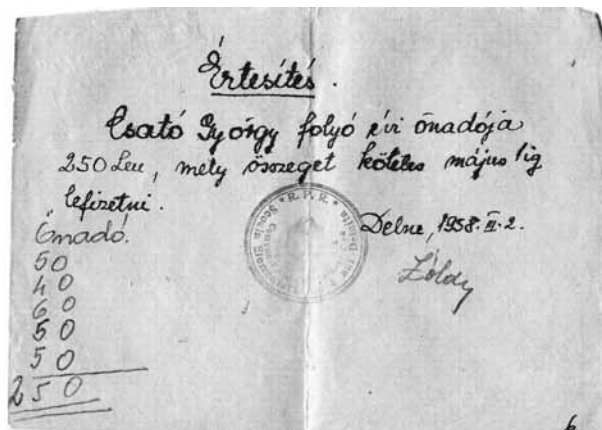 Értesítés.
Csató György folyó évi önadója
250 Leu, mely összeget köteles május 1ig
lefizetni.
Delne, 1958. III. 2.
Zöldy
* R.P.R. *
Önadó.
50
40
60
50
50
250
6